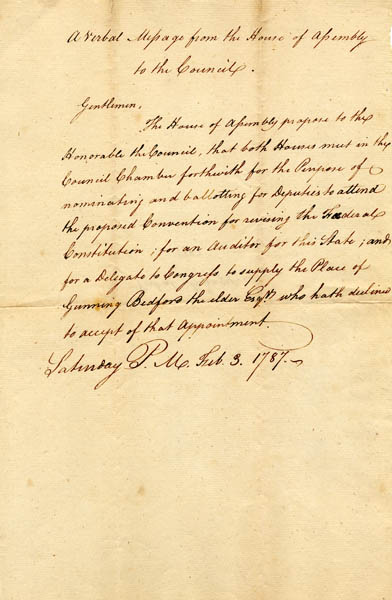 A Verbal Message from the House of Assembly
to the Council.
Gentlemen,
The House of Assembly propose to the
Honorable the Council, that both Houses meet in the
Council Chamber forthwith for the Purpose of
nominating and ballotting for Deputies to attend
the proposed Convention for revising the Fœderal
Constitution; for an Auditor for this State; and
for a Delegate to Congress to supply the Place of
Gunning Bedford the elder Esqr. who hath declined
to accept of that Appointment.
Saturday P. M. Feb. 3. 1787.